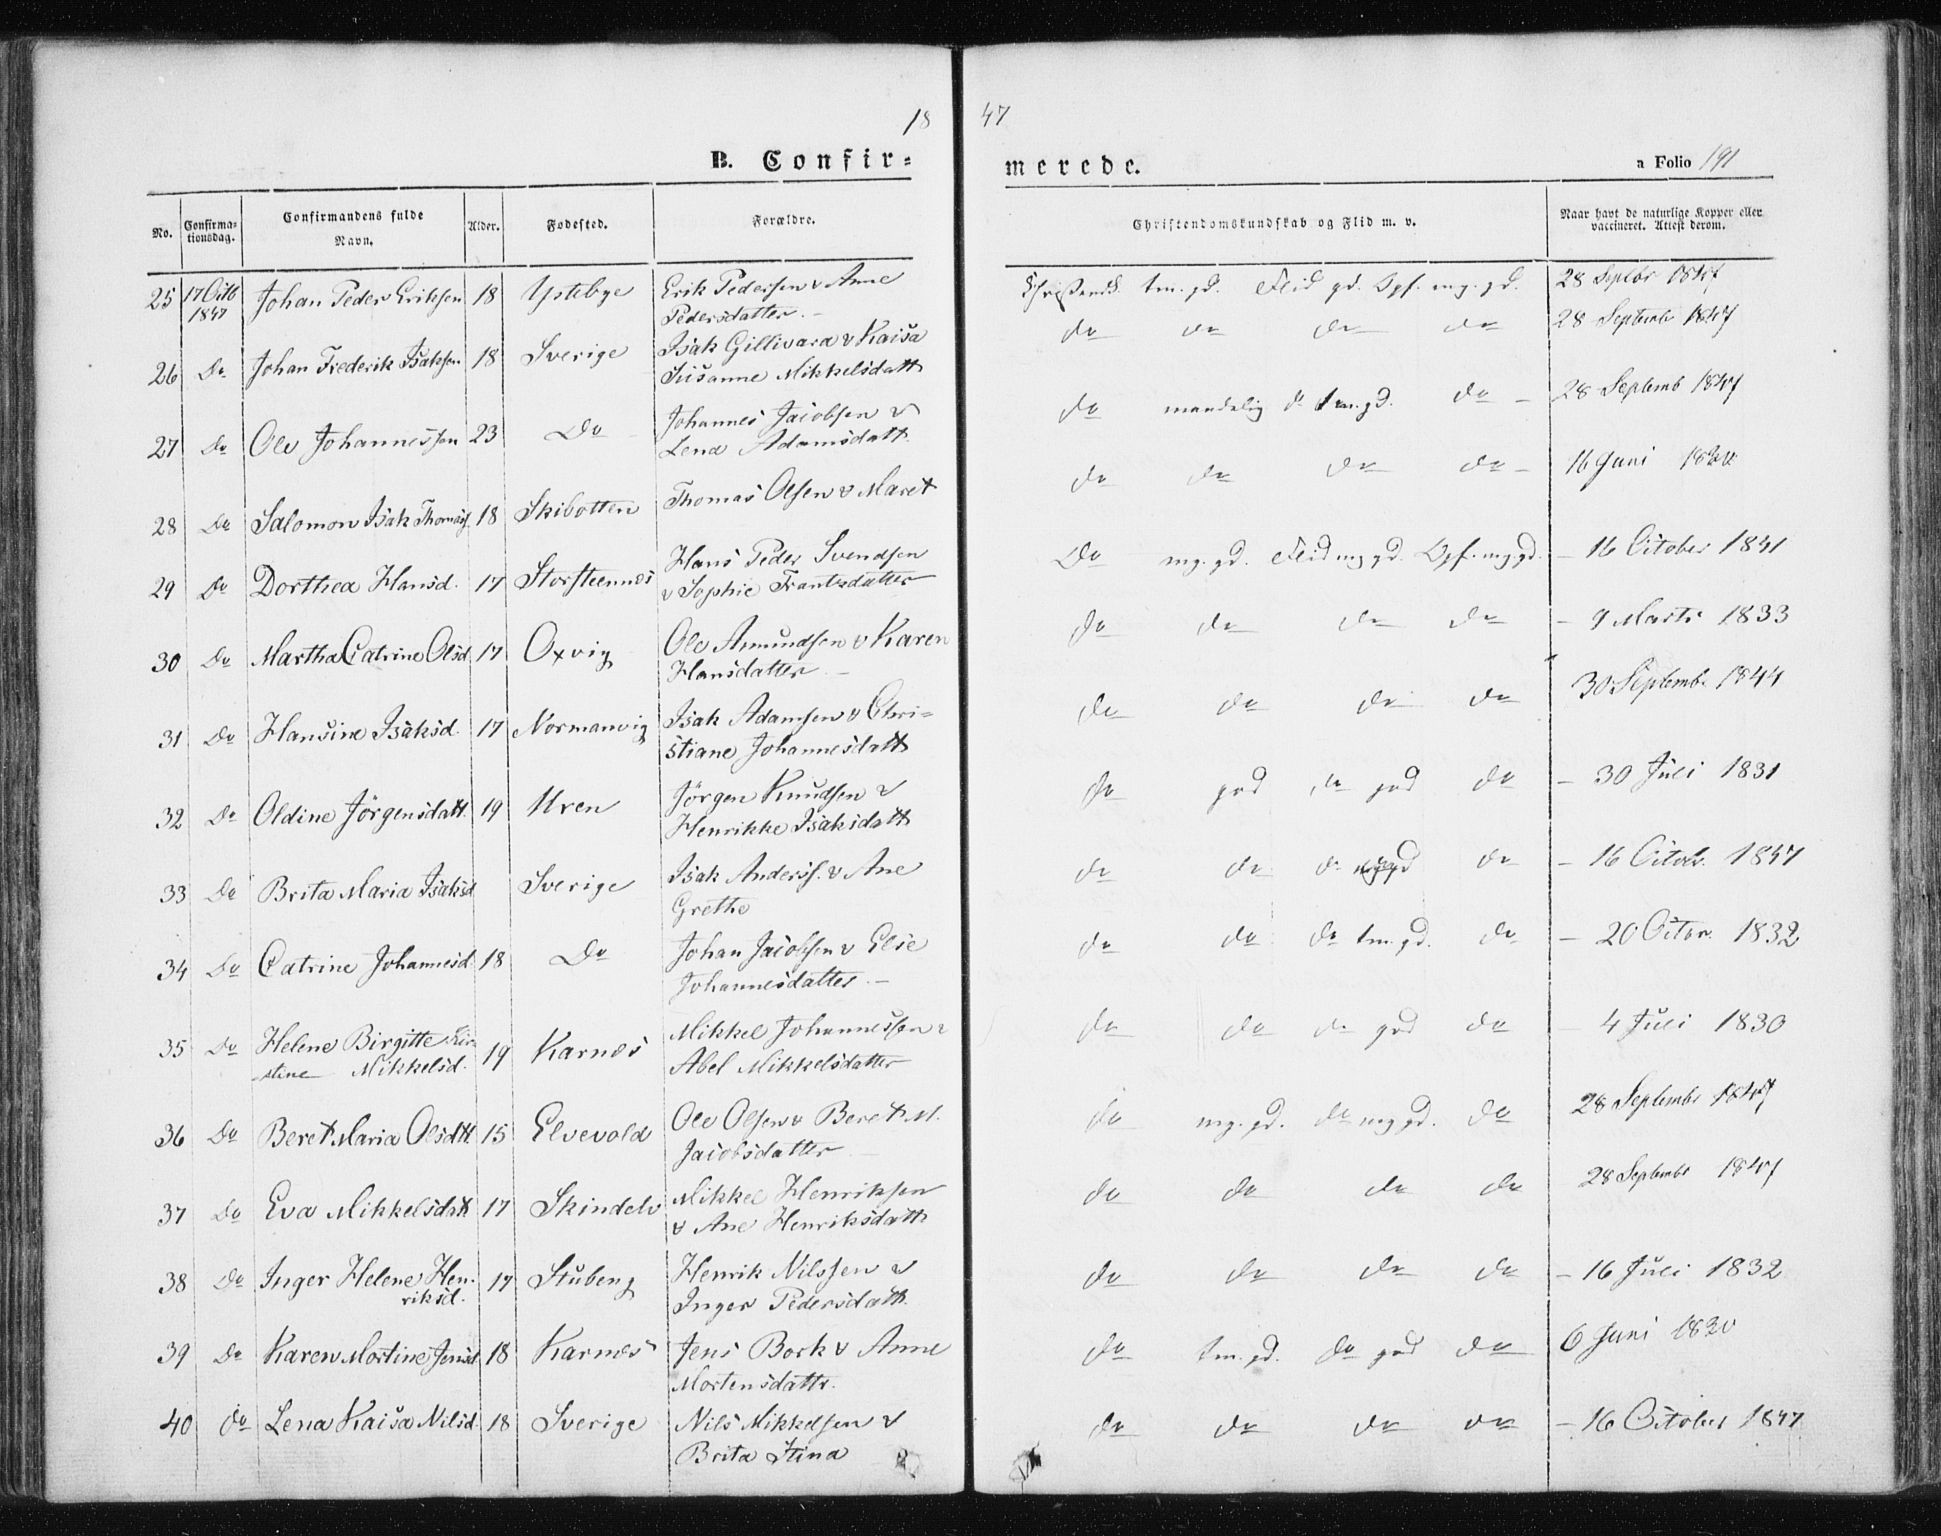 18 47
B. Confir- merede.
a Folio 191
No. Confirma-tionsdag. Confirmandens fulde Navn. Alder. Fødested. Forældre. Christendomskundskab og Flid m. v. Naar havt de naturlige Kopper eller vaccineret. Attest derom.
25 17 Octb 1847 Johan Peder Eriksen 18 Ystebye Erik Pedersen & Ane Pedersdatter. tm. gd. Flid gd. Opf. mg. gd. 28 Septbr 1847
26 Do Johan Frederik Isaksen 18 Sverige Isak Gillivara & Kaisa Susanne Mikkelsdatt do do do do 28 Septembr 1847
27 Do Ole Johannessen 23 Do Johannes Jacobsen & Lena Adamsdatt. do maadelig do tm. gd. do – 28 Septemb 1847
28 Do Salomon Isak Thomass. 18 Skibotten Thomas Olsen & Maret do do do do – 16 Juni
29 Do Dorthea Hansd. 17 Storsteennes Hans Peder Svendsen & Sophie Frantzdatter Do mg. gd. Flid mg gd. Opf. mg. gd. – 16 October 1841
30 Do Martha Catrine Olsd. 17 Oxvig Ole Amundsen & Karen Hansdatter – do do do do – 9 Marts 1833
31 Do Hansine Isaksd. 17 Normanvig Isak Adamsen & Christiane Johannesdatt do do do do 30 Septembr 1844
32 Do Oldine Jörgensdatt. 19 Uren Jörgen Knudsen & Henrikke Isaksdatt do god do god do – 30 Juli 1831
33 Do Brita Maria Isaksd Sverige Isak Anderss. & Ane Grethe do do do do – 16 Octobr. 1847
34 Do Catrine Johannesd. 18 Do Johan Jacobsen & Else Johannesdatter – do do do tm. gd. do – 20 Octbr. 1832
35 Do Helene Birgitte Kirstine Mikkelsd. 19 Karnes Mikkel Johannessen & Abel Mikkelsdatter do do do god do – 4 Juli 1830
36 Do Beret Maria Olsdtt. 15 Elvevold Ole Olsen & Beret M. Jacobsdatter – do mg. gd. do mg gd. do 28 Septembr 1847
37 Do Eva Mikkelsdatt 17 Skindelv Mikkel Henriksen & Ane Henriksdatt do do do do 28 Septembr 1847
38 Do Inger Helene Henriksd. 17 Stubeng Henrik Nilssen & Inger Pedersdatt. do do do do – 16 Juli 1832
39 Do Karen Mortine Jensd 18 Karnes Jens Bork & Anne Mortensdattr. do tm. gd. do god do 6 Juni 1830
40 do Lena Kaisa Nilsd. 18 Sverige Nils Mikkelsen & Brita Stina do do do do – 16 October 1847